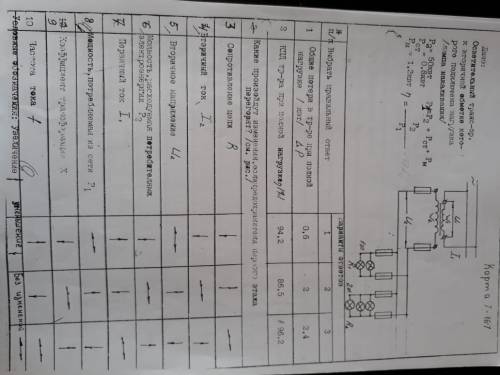 Карта 7-167
Дано:
Осветительный транс-ор,
к вторичной обмотке кото-
рого подключена нагрузка
/лампа накаливания/
P₂= 50квт
Pст = 0,8квт
Pм = 1,2квт
P₁=P₂ + Pст + Pм
η = P₂ / P₁
№
п/п Выбрать правильный ответ
варианты ответов
1 2 3
1 Общие потери в тр-ре при полной
нагрузке /квт/ ΔP
0,6 2 2,4
2 КПД тр-ра при полной нагрузке η/%/
94,2 86,5 96,2
Какие произойдут изменения, если предохранитель первого этажа
перегорит? /см. рис./
3 Сопротивление цепи R
4 Вторичный ток I₂
5 Вторичное напряжение U₂
6 Мощность, расходуемая потребителями
электроэнергии P₂
7 Первичный ток I₁
8 Мощность, потребляемая из сети P₁
9 Коэффициент трансформации K
10 Частота тока f
Условные обозначения: увеличение
уменьшение
без изменений